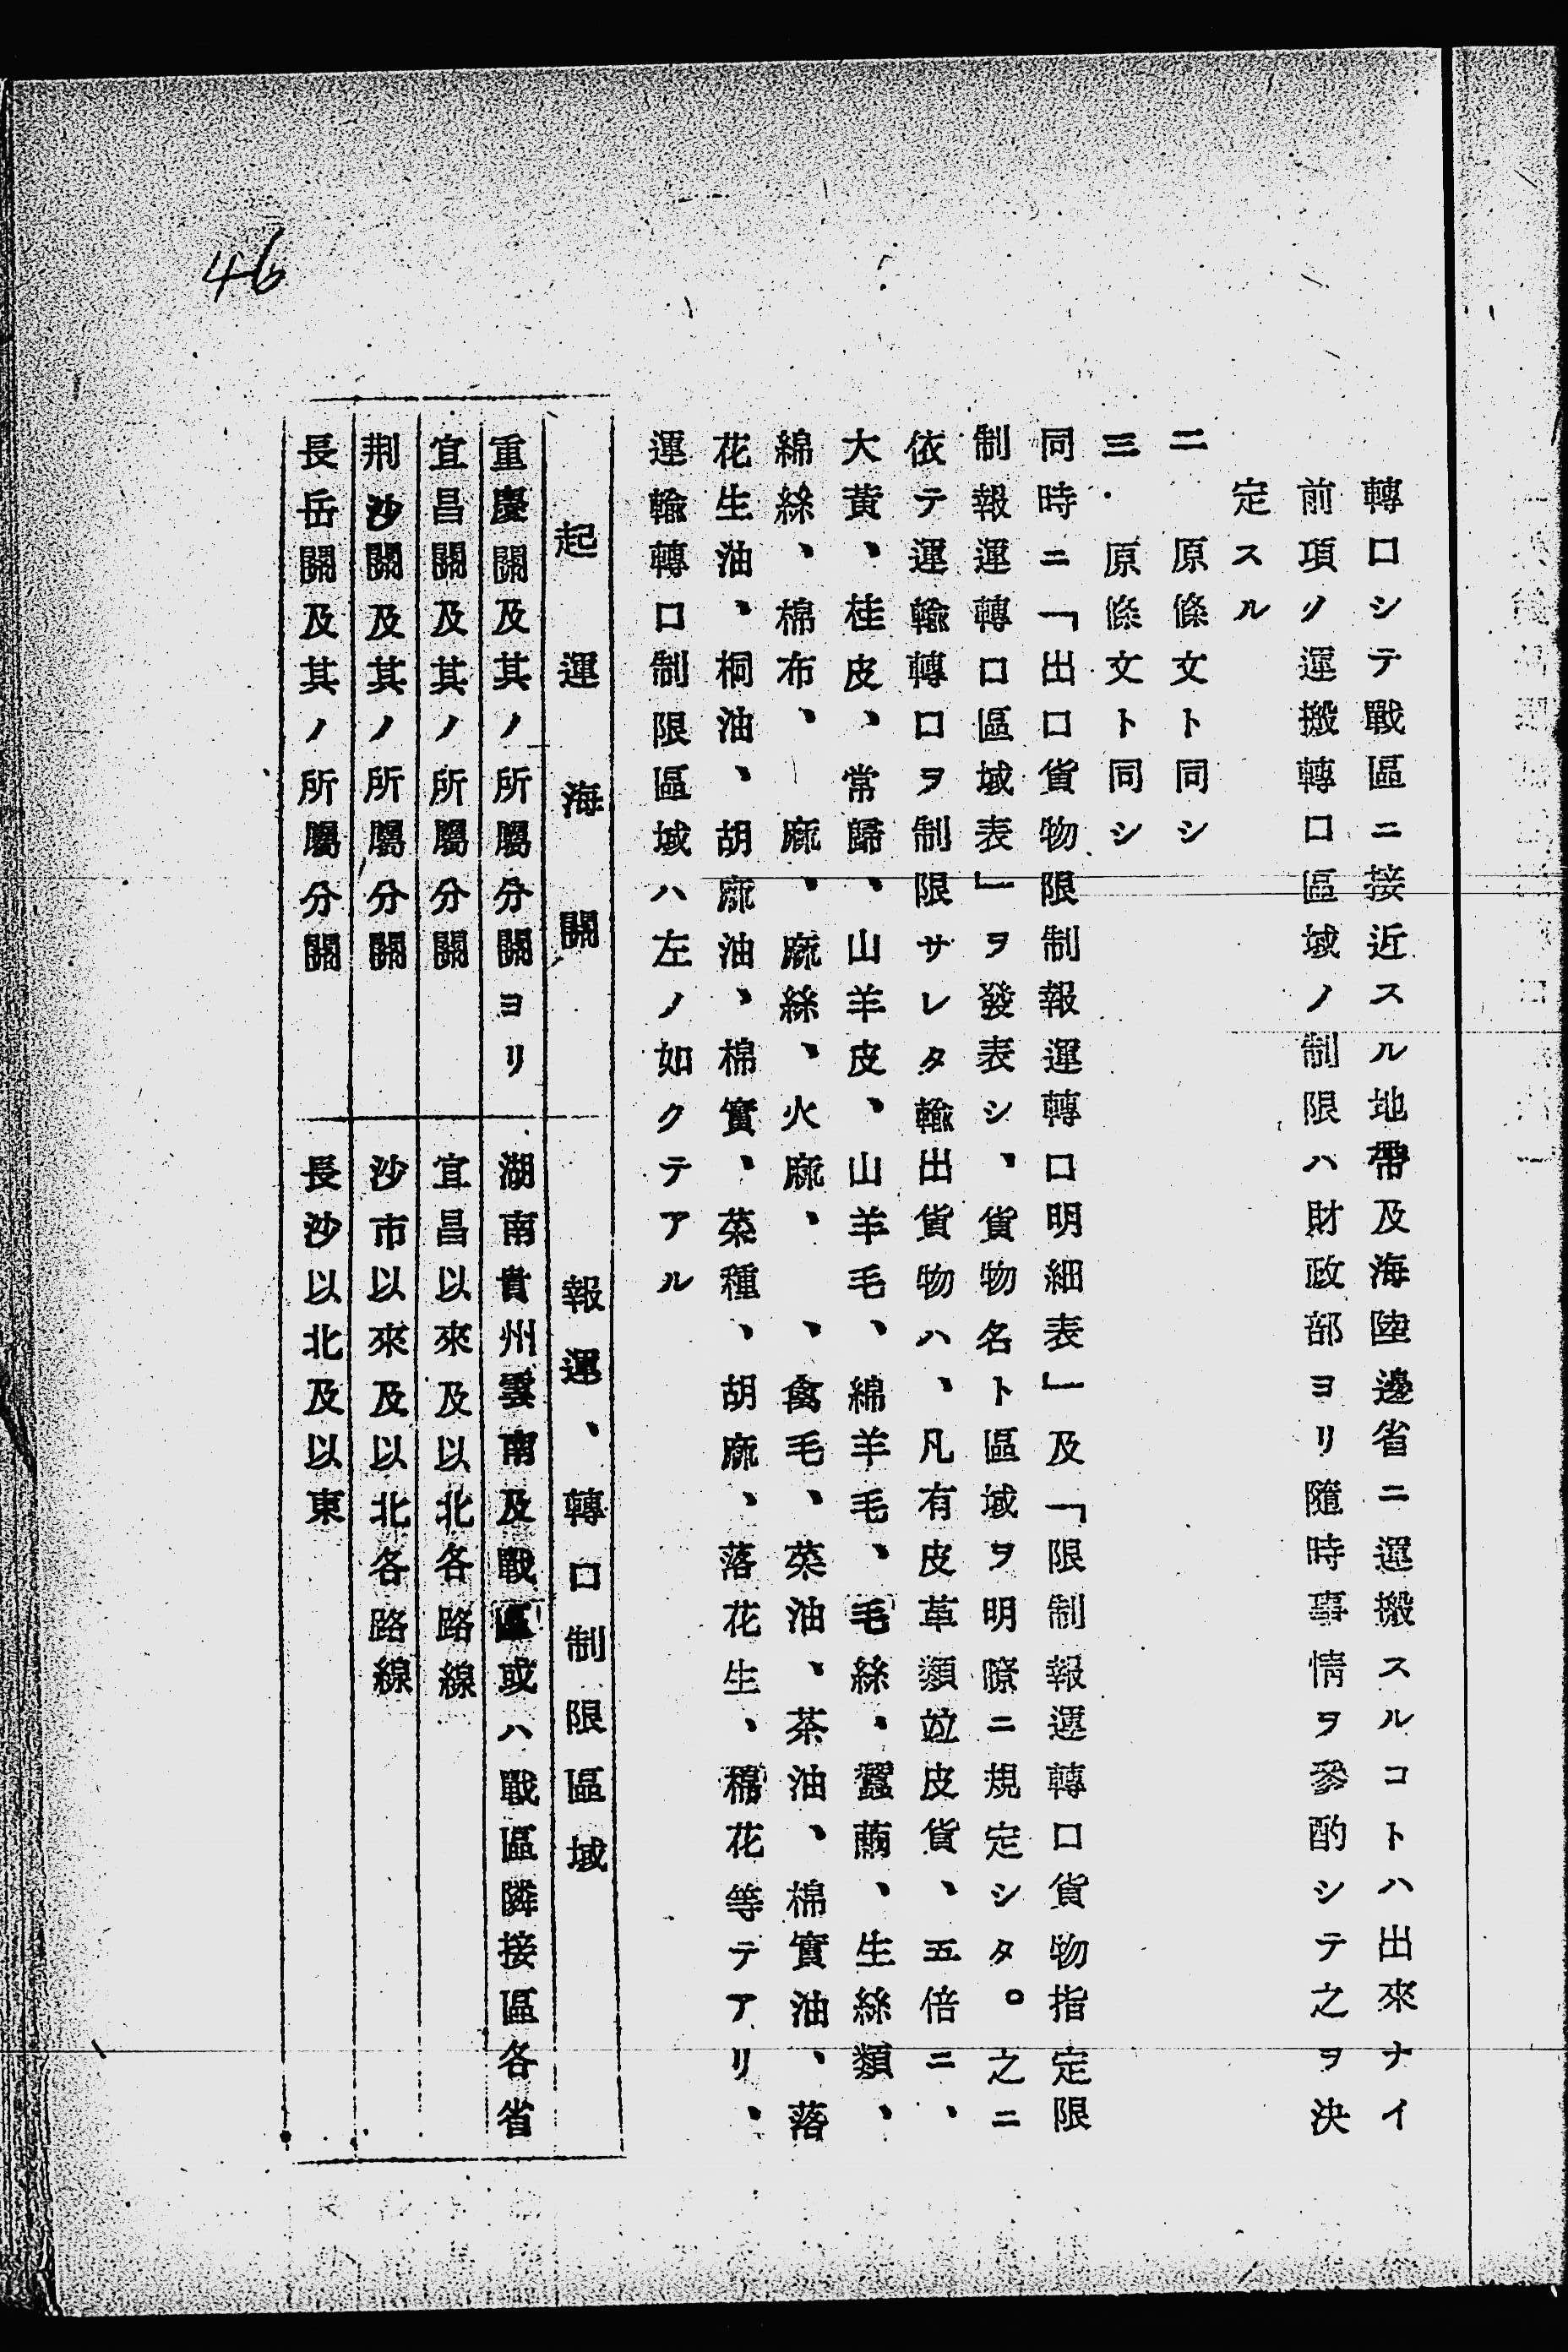 轉口シテ戰區ニ接近スル地帶及海陸邊省ニ運搬スルコトハ出來ナイ
前項ノ運搬轉口區域ノ制限ハ財政部ヨリ隨時事情ヲ參酌シテ之ヲ決
定スル
二　原條文ト同シ
三．原條文ト同シ
同時ニ「出口貨物限制報運轉口明細表」及「限制報運轉口貨物指定限
制報運轉口區域表」ヲ發表シ、貨物名ト區域ヲ明瞭ニ規定シタ。之ニ
依テ運輸轉口ヲ制限サレタ輸出貨物ハ、凡有皮革類竝皮貨、五倍ニ、
大黄、桂皮、常歸、山羊皮、山羊毛、綿羊毛、毛絲、蠶繭、生絲類、
綿絲、棉布、麻、麻絲、火麻、、禽毛、菜油、茶油、棉實油、落
花生油、桐油、胡麻油、棉實、菜種、胡麻、落花生、棉花等テアリ、
運輸轉口制限區域ハ左ノ如クテアル
起運海關　報運、轉口制限區域
重慶關及其ノ所屬分關ヨリ　湖南貴州雲南及戰區或ハ戰區隣接區各省
宜昌關及其ノ所屬分關　宜昌以來及以北各路線
荆沙關及其ノ所屬分關　沙市以來及以北各路線
長岳關及其ノ所屬分關　長沙以北及以東
46